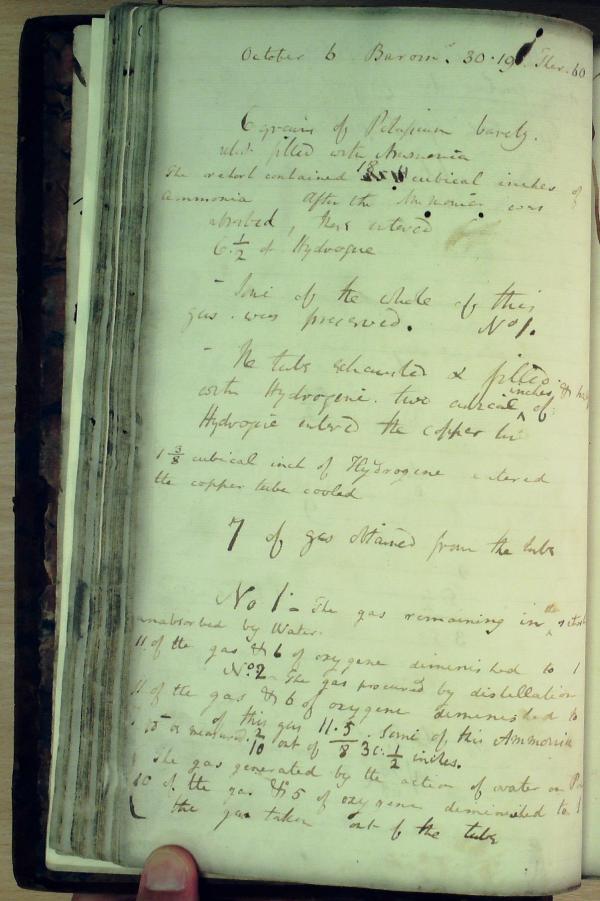 October 6 Barom^r. 30.19. Ther. 60
6 grains of Potassium barely.
retort filled with Ammonia
The retort contained 18 cubical inches of
Ammonia After the Ammonia was
absorbed, there entered
6. 1/2 of Hydrogene
- Some of the whole of this
gas was preserved. No 1.
- The tube exhausted & filled
with Hydrogene. two cubical inches & half of
Hydrogene entered the copper tube
1 3/8 cubical inch of Hydrogene entered
the copper tube cooled
7 of gas obtained from the tube
No 1 - The gas remaining in the retort
unabsorbed by Water.
11 of the gas & 6 of oxygene diminished to 1
No. 2 - The gas procured by distillation
11 of the gas & 6 of oxygene diminished to
of this gas 11.5. Some of this Ammonia
or measured 2/10 out of /8 3 c. 1/2 inches.
The gas generated by the action of water on
10 of the gas & 5 of oxygene diminished to 1
the gas taken out of the tube